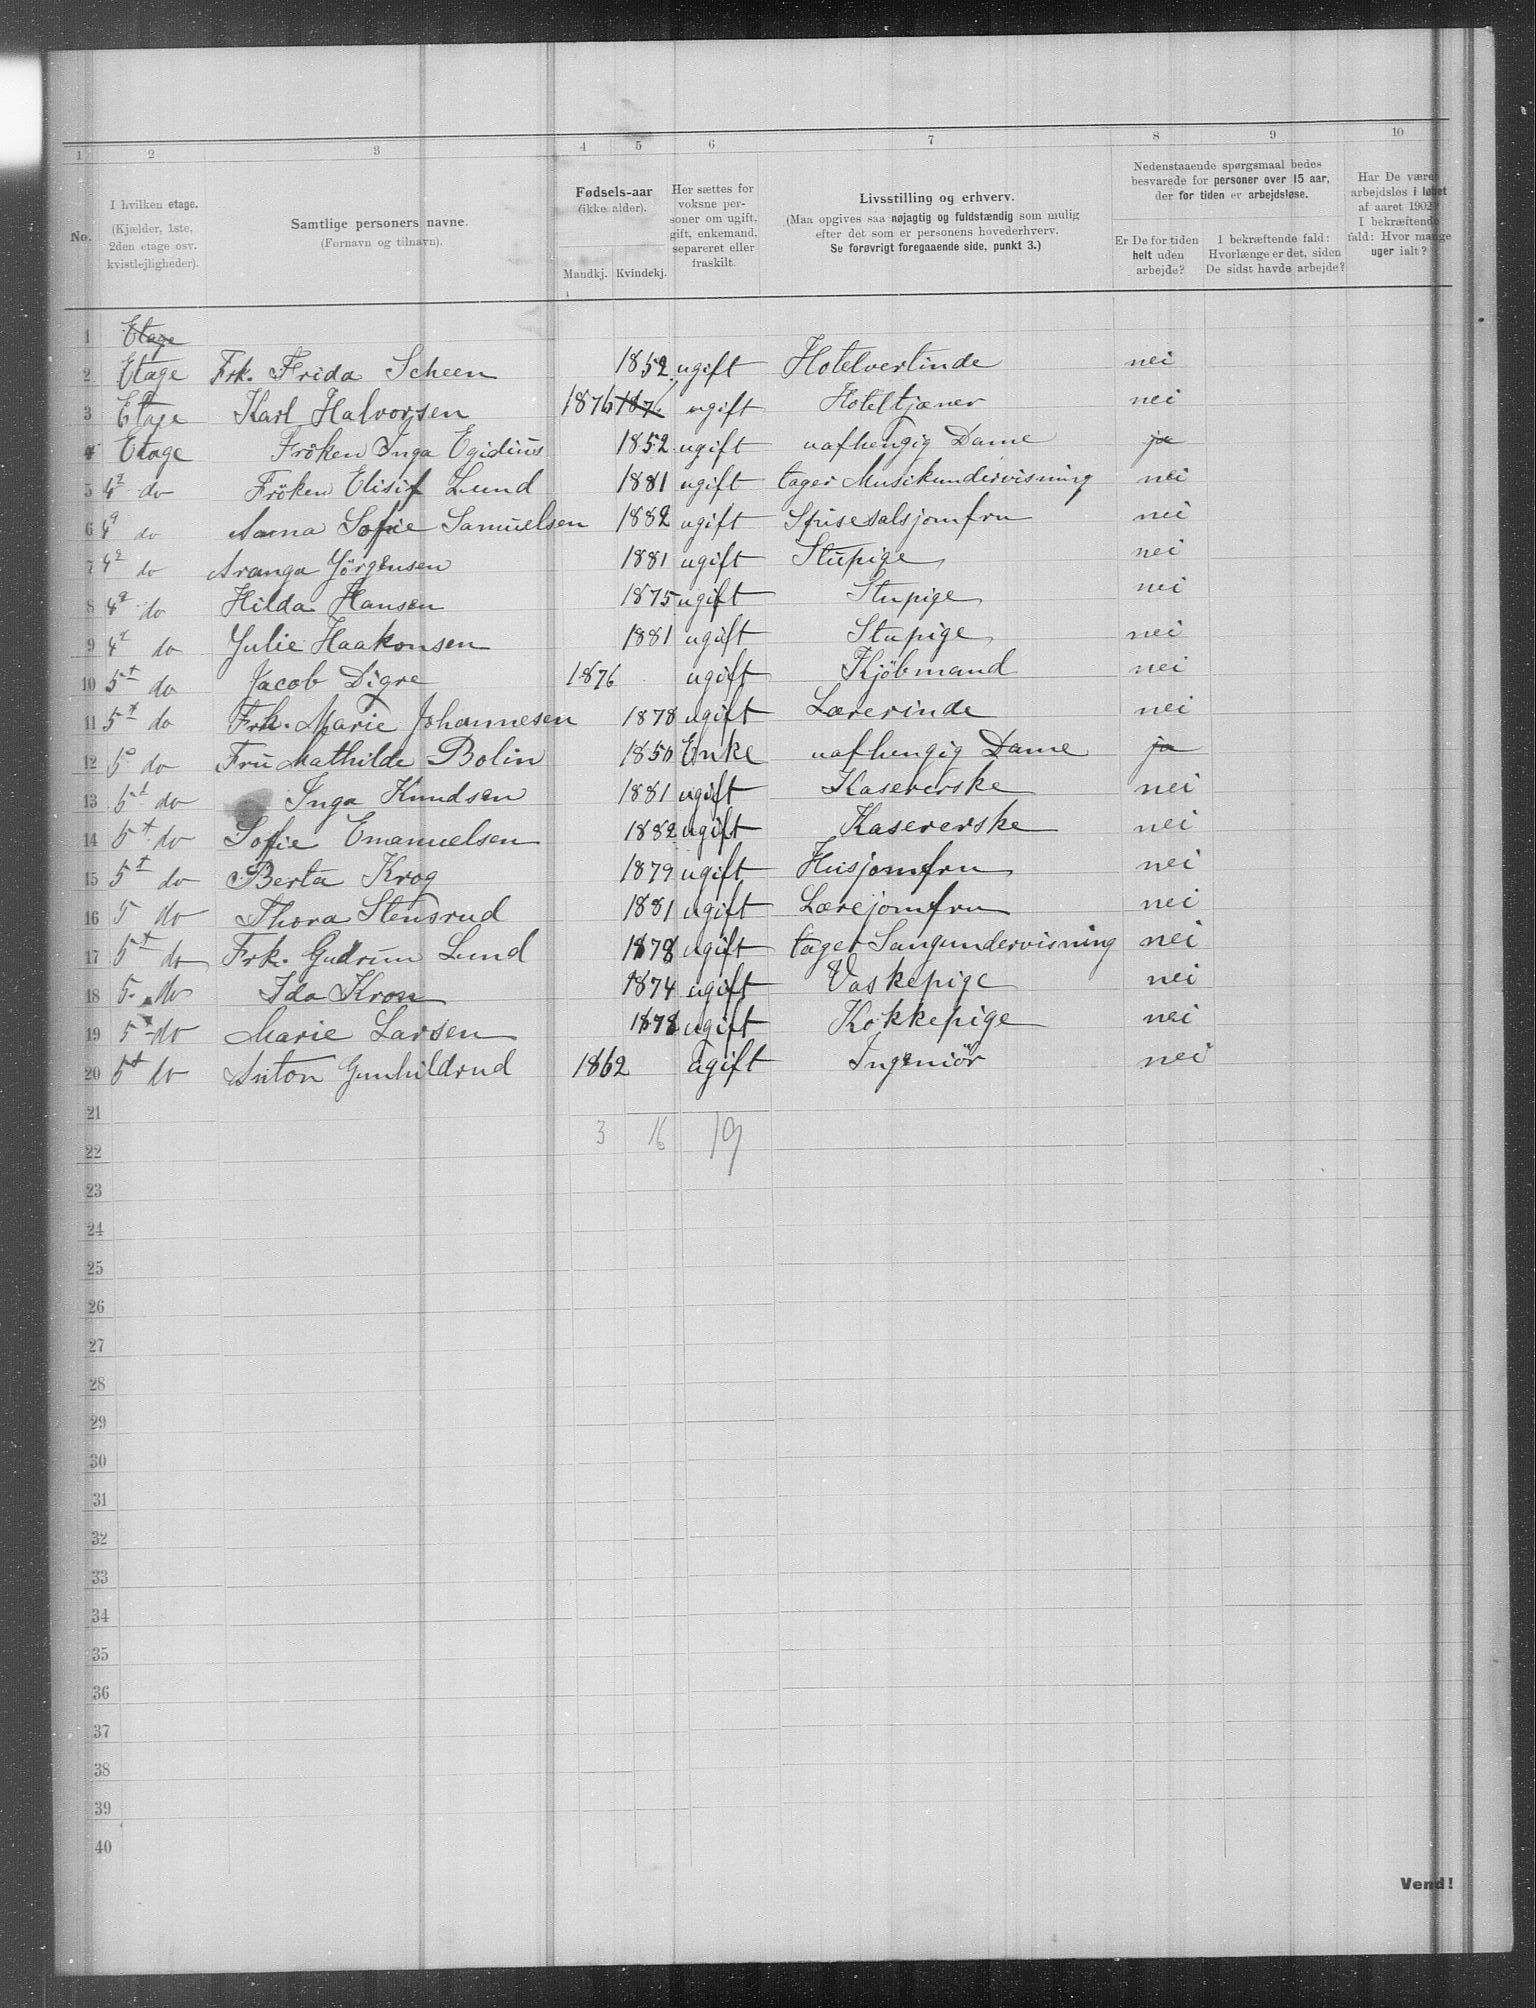 1 2 3 4 5 6 7 8 9 10
No.
I hvilken etage. (Kjælder, 1ste, 2den etage osv. kvistlejligheder).
Samtlige personers navne. (Fornavn og tilnavn).
Fødsels-aar (ikke alder). Mandkj. Kvindekj.
Her sættes for voksne personer om ugift, gift, enkemand, separeret eller fraskilt.
Livsstilling og erhverv. (Maa opgives saa nøjagtig og fuldstændig som mulig efter det som er personens hovederhverv. Se forøvrigt foregaaende side, punkt 3.)
Nedenstaaende spørgsmaal bedes besvarede for personer over 15 aar, der for tiden er arbejdsløse.
Er De for tiden helt uden arbejde?
I bekræftende fald: Hvorlænge er det, siden De sidst havde arbejde?
Har De været arbejdsløs i løbet af aaret 1902? I bekræftende fald: Hvor mange uger ialt?
1 Etage
2 Etage Frk. Frida Scheen 1852 ugift Hotelvertinde nei
3 Etage Karl Halvorsen 1876 187 ugift Hoteltjæner nei
4 Etage Fröken Inga Egidius 1852 ugift uafhengig Dame ja
5 4 do Fröken Elisif Lund 1881 ugift tager Musikundervisning nei
6 4 do Anna Sofie Samuelsen 1882 ugift Spisesalsjomfru nei
7 4 do Aranga Jörgensen 1881 ugift Stupige nei
8 4 do Hilda Hansen 1875 ugift Stupige nei
9 4 do Julie Haakonsen 1881 ugift Stupige nei
10 5t do Jacob Digre 1876 ugift Kjöbmand nei
11 5t do Frk. Marie Johannesen 1878 ugift Lærerinde nei
12 5 do Fru Mathilde Bolin 1850 Enke uafhengig Dame ja
13 5t do Inga Knudsen 1881 ugift Kasererske nei
14 5t do Sofie Emanuelsen 1882 ugift Kasererske nei
15 5t do Berta Krog 1879 ugift Husjomfru nei
16 5 do Thora Stensrud 1881 ugift Lærejomfru nei
17 5t do Frk. Gudrun Lund 1878 ugift tager Sangundervisning nei
18 5 do Ida Kron 1874 ugift Vaskepige nei
19 5t do Marie Larsen 1878 ugift Kokkepige nei
20 5t do Anton Gunhildrud 1862 Ugift Ingeniör nei
21
22 3 16 19
23
24
25
26
27
28
29
30
31
32
33
34
35
36
37
38
39
40
Vend!